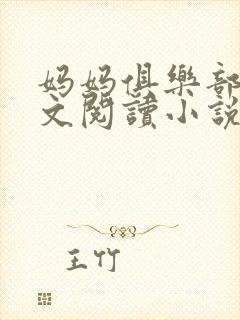 妈妈俱樂部
文閱讀小說
王竹